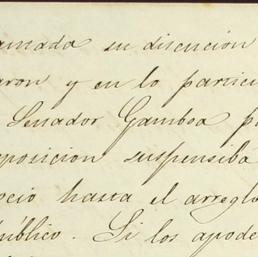 amada su discucion
aron y en lo partici
Senador Gamboa p
posicion suspensiba
ocio hasta el arreglo
público. Si los apode